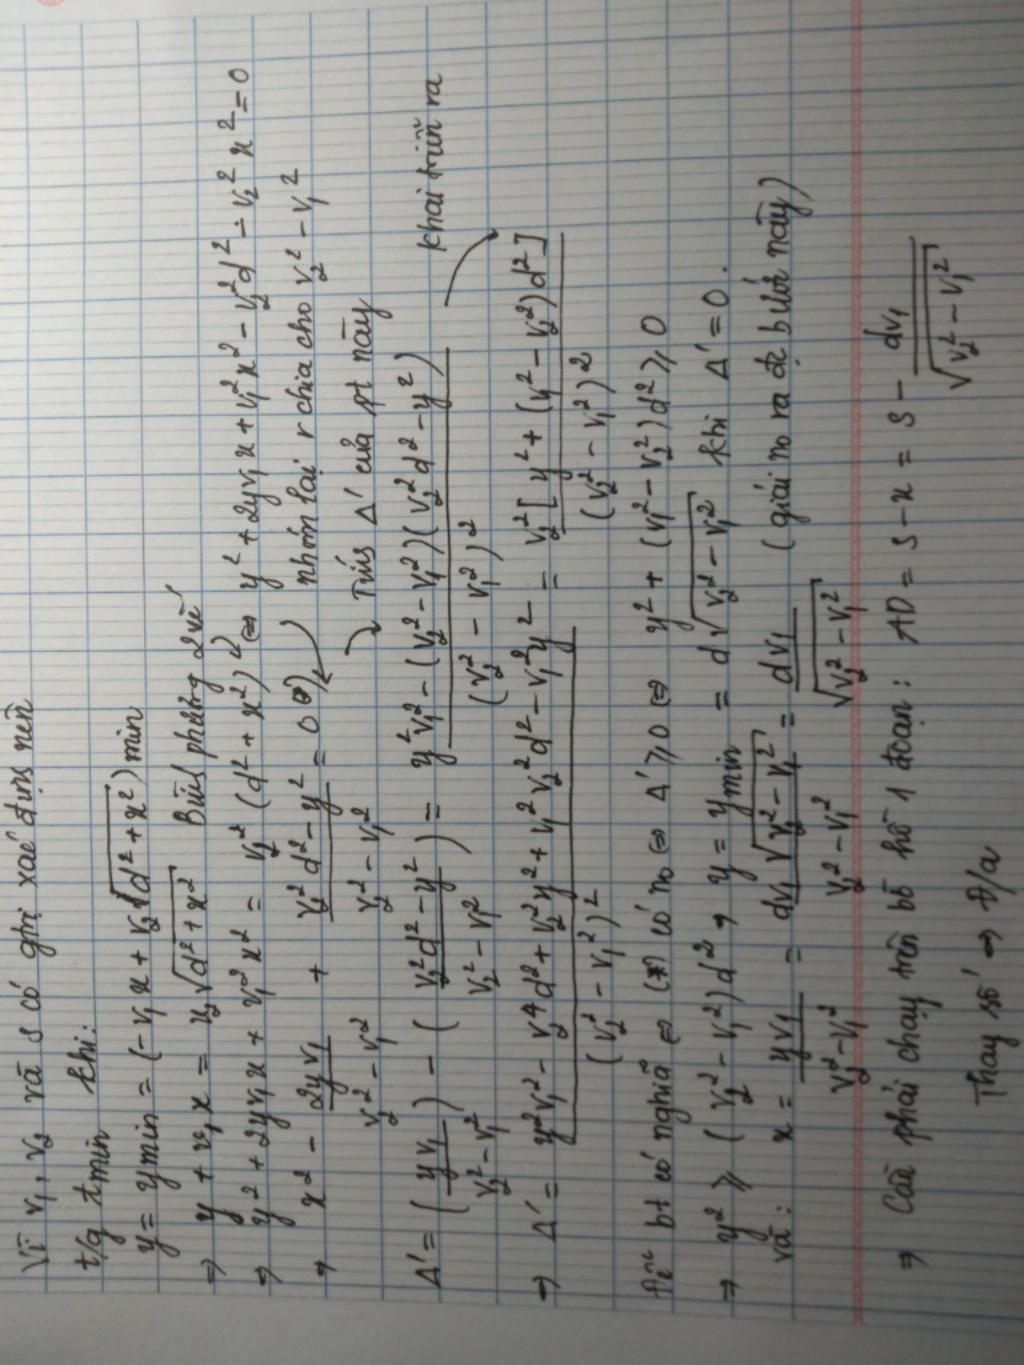 Vì v₁, v₂ và s có ghị xác định nên
t/g tmin khi:
y = ymin = (-v₁x + v₂√(d² + x²)) min
⇒ y + v₁x = v₂√(d² + x²) Bình phương 2 vế
⇒ y² + 2yv₁x + v₁²x² = v₂²(d² + x²) ⇔ y² + 2yv₁x + v₁²x² - v₂²d² - v₂²x² = 0
nhóm lại r chia cho v₂² - v₁²
→ x² - 2yv₁/(v₂² - v₁²) + (v₂²d² - y²)/(v₂² - v₁²) = 0 (*)
Tính Δ' của pt này
Δ' = (yv₁/(v₂² - v₁²)) - ((v₂²d² - y²)/(v₂² - v₁²)) = (y²v₁² - (v₂² - v₁²)(v₂²d² - y²))/(v₂² - v₁²)²
khai triển ra
→ Δ' = (y²v₁² - v₂⁴d² + v₂²y² + v₁²v₂²d² - v₁²y²)/(v₂² - v₁²)² = v₂²[y² + (v₁² - v₂²)d²]/(v₂² - v₁²)²
Để bt có nghĩa ⇔ (*) có no ⇔ Δ' ⩾ 0 ⇔ y² + (v₁² - v₂²)d² ⩾ 0
⇒ y² ⩾ (v₂² - v₁²)d² → y = ymin = d√(v₂² - v₁²) khi Δ' = 0.
và: x = yv₁/(v₂² - v₁²) = dv₁√(v₂² - v₁²)/(v₂² - v₁²) = dv₁/√(v₂² - v₁²) (giải no ra đc bước này)
⇒ Cần phải chạy trên bờ hồ 1 đoạn: AD = S - x = S - dv₁/√(v₂² - v₁²)
Thay số → Đ/a